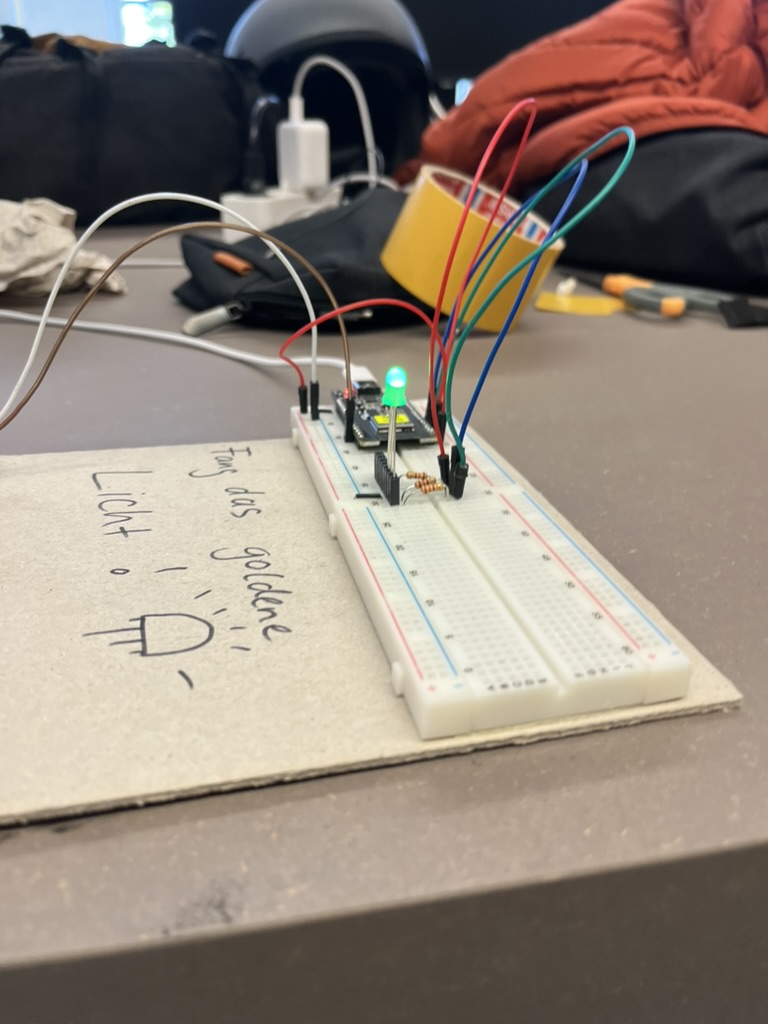 Fang das goldene
Licht